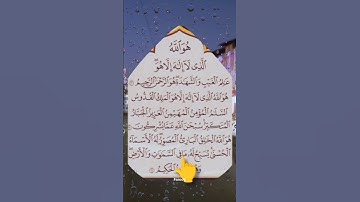 هُوَ ٱللَّهُ
ٱلَّذِى لَآ إِلَٰهَ إِلَّا هُوَ
عَٰلِمُ ٱلْغَيْبِ وَٱلشَّهَٰدَةِ هُوَ ٱلرَّحْمَٰنُ ٱلرَّحِيمُ
هُوَ ٱللَّهُ ٱلَّذِى لَآ إِلَٰهَ إِلَّا هُوَ ٱلْمَلِكُ ٱلْقُدُّوسُ
ٱلسَّلَٰمُ ٱلْمُؤْمِنُ ٱلْمُهَيْمِنُ ٱلْعَزِيزُ ٱلْجَبَّارُ
ٱلْمُتَكَبِّرُ سُبْحَٰنَ ٱللَّهِ عَمَّا يُشْرِكُونَ
هُوَ ٱللَّهُ ٱلْخَٰلِقُ ٱلْبَارِئُ ٱلْمُصَوِّرُ لَهُ ٱلْأَسْمَآءُ
ٱلْحُسْنَىٰ يُسَبِّحُ لَهُۥ مَا فِى ٱلسَّمَٰوَٰتِ وَٱلْأَرْضِ
ٱلْحَكِيمُ